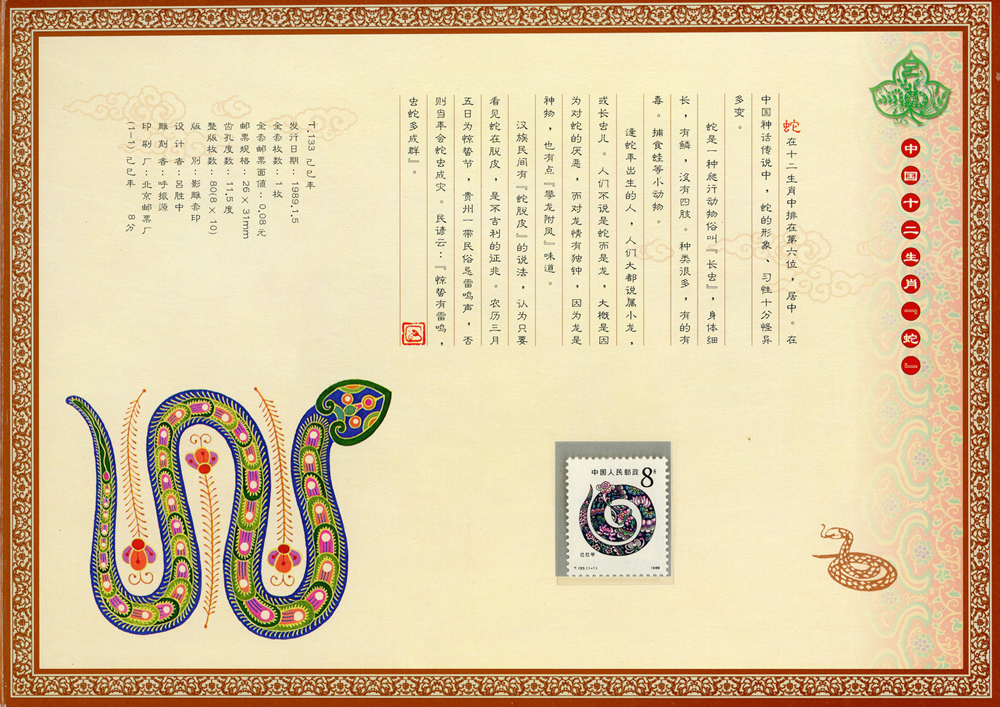 中国十二生肖『蛇』
蛇在十二生肖中排在第六位，居中。在
中国神话传说中，蛇的形象、习性十分怪异
多变。
蛇是一种爬行动物俗叫『长虫』，身体细
长，有鳞，没有四肢。种类很多，有的有
毒。捕食蛙等小动物。
逢蛇年出生的人，人们大都说属小龙，
或长虫儿。人们不说是蛇而是龙，大概是因
为对蛇的厌恶，而对龙情有独钟，因为龙是
神物，也有点『攀龙附凤』味道。
汉族民间有『蛇脱皮』的说法，认为只要
看见蛇在脱皮，是不吉利的征兆。农历三月
五日为惊蛰节，贵州一带民俗忌雷鸣声，否
则当年会蛇虫成灾。民谚云：『惊蛰有雷鸣，
虫蛇多成群』。
T.133 己巳年
发行日期：1989.1.5
全套枚数：1枚
全套邮票面值：0.08元
邮票规格：26×31mm
齿孔度数：11.5度
整版枚数：80(8×10)
版 别：影雕套印
设计者：吕胜中
雕刻者：呼振源
印刷厂：北京邮票厂
(1-1) 己巳年 8分
中国人民邮政 8分
己巳年
T.133.(1-1) 1989